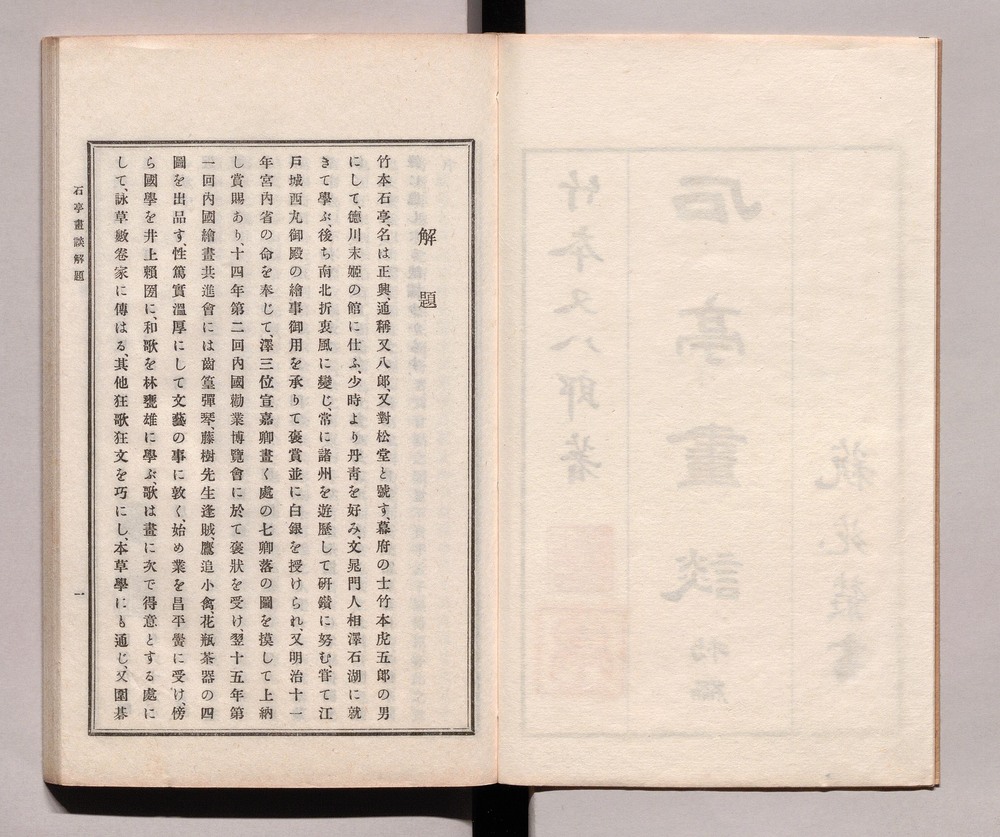 解題
竹本石亭、名は正興、通稱又八郎、又對松堂と號す、幕府の士竹本虎五郎の男
にして、德川末姬の館に仕ふ、少時より丹靑を好み、文晁門人相澤石湖に就
きて學ぶ後ち南北折衷風に變じ、常に諸州を遊歷して硏鑽に努む、甞て江
戶城西丸御殿の繪事御用を承りて褒賞並に白銀を授けられ、又明治十一
年宮內省の命を奉じて、澤三位宣嘉卿畫く處の七卿落の圖を摸して上納
し賞賜あり、十四年第二回內國勸業博覽會に於て褒狀を受け、翌十五年第
一回內國繪畫共進會には齒篁彈琴、藤樹先生逢賊、鷹追小禽、花瓶茶器の四
圖を出品す、性篤實溫厚にして文藝の事に敦く、始め業を昌平黌に受け、傍
ら國學を井上賴圀に、和歌を林甕雄に學ぶ、歌は畫に次で得意とする處に
して、詠草數卷家に傳はる、其他狂歌狂文を巧にし、本草學にも通じ、又圍碁
石亭畫談解題
一
石亭畫談
竹本又八郎著